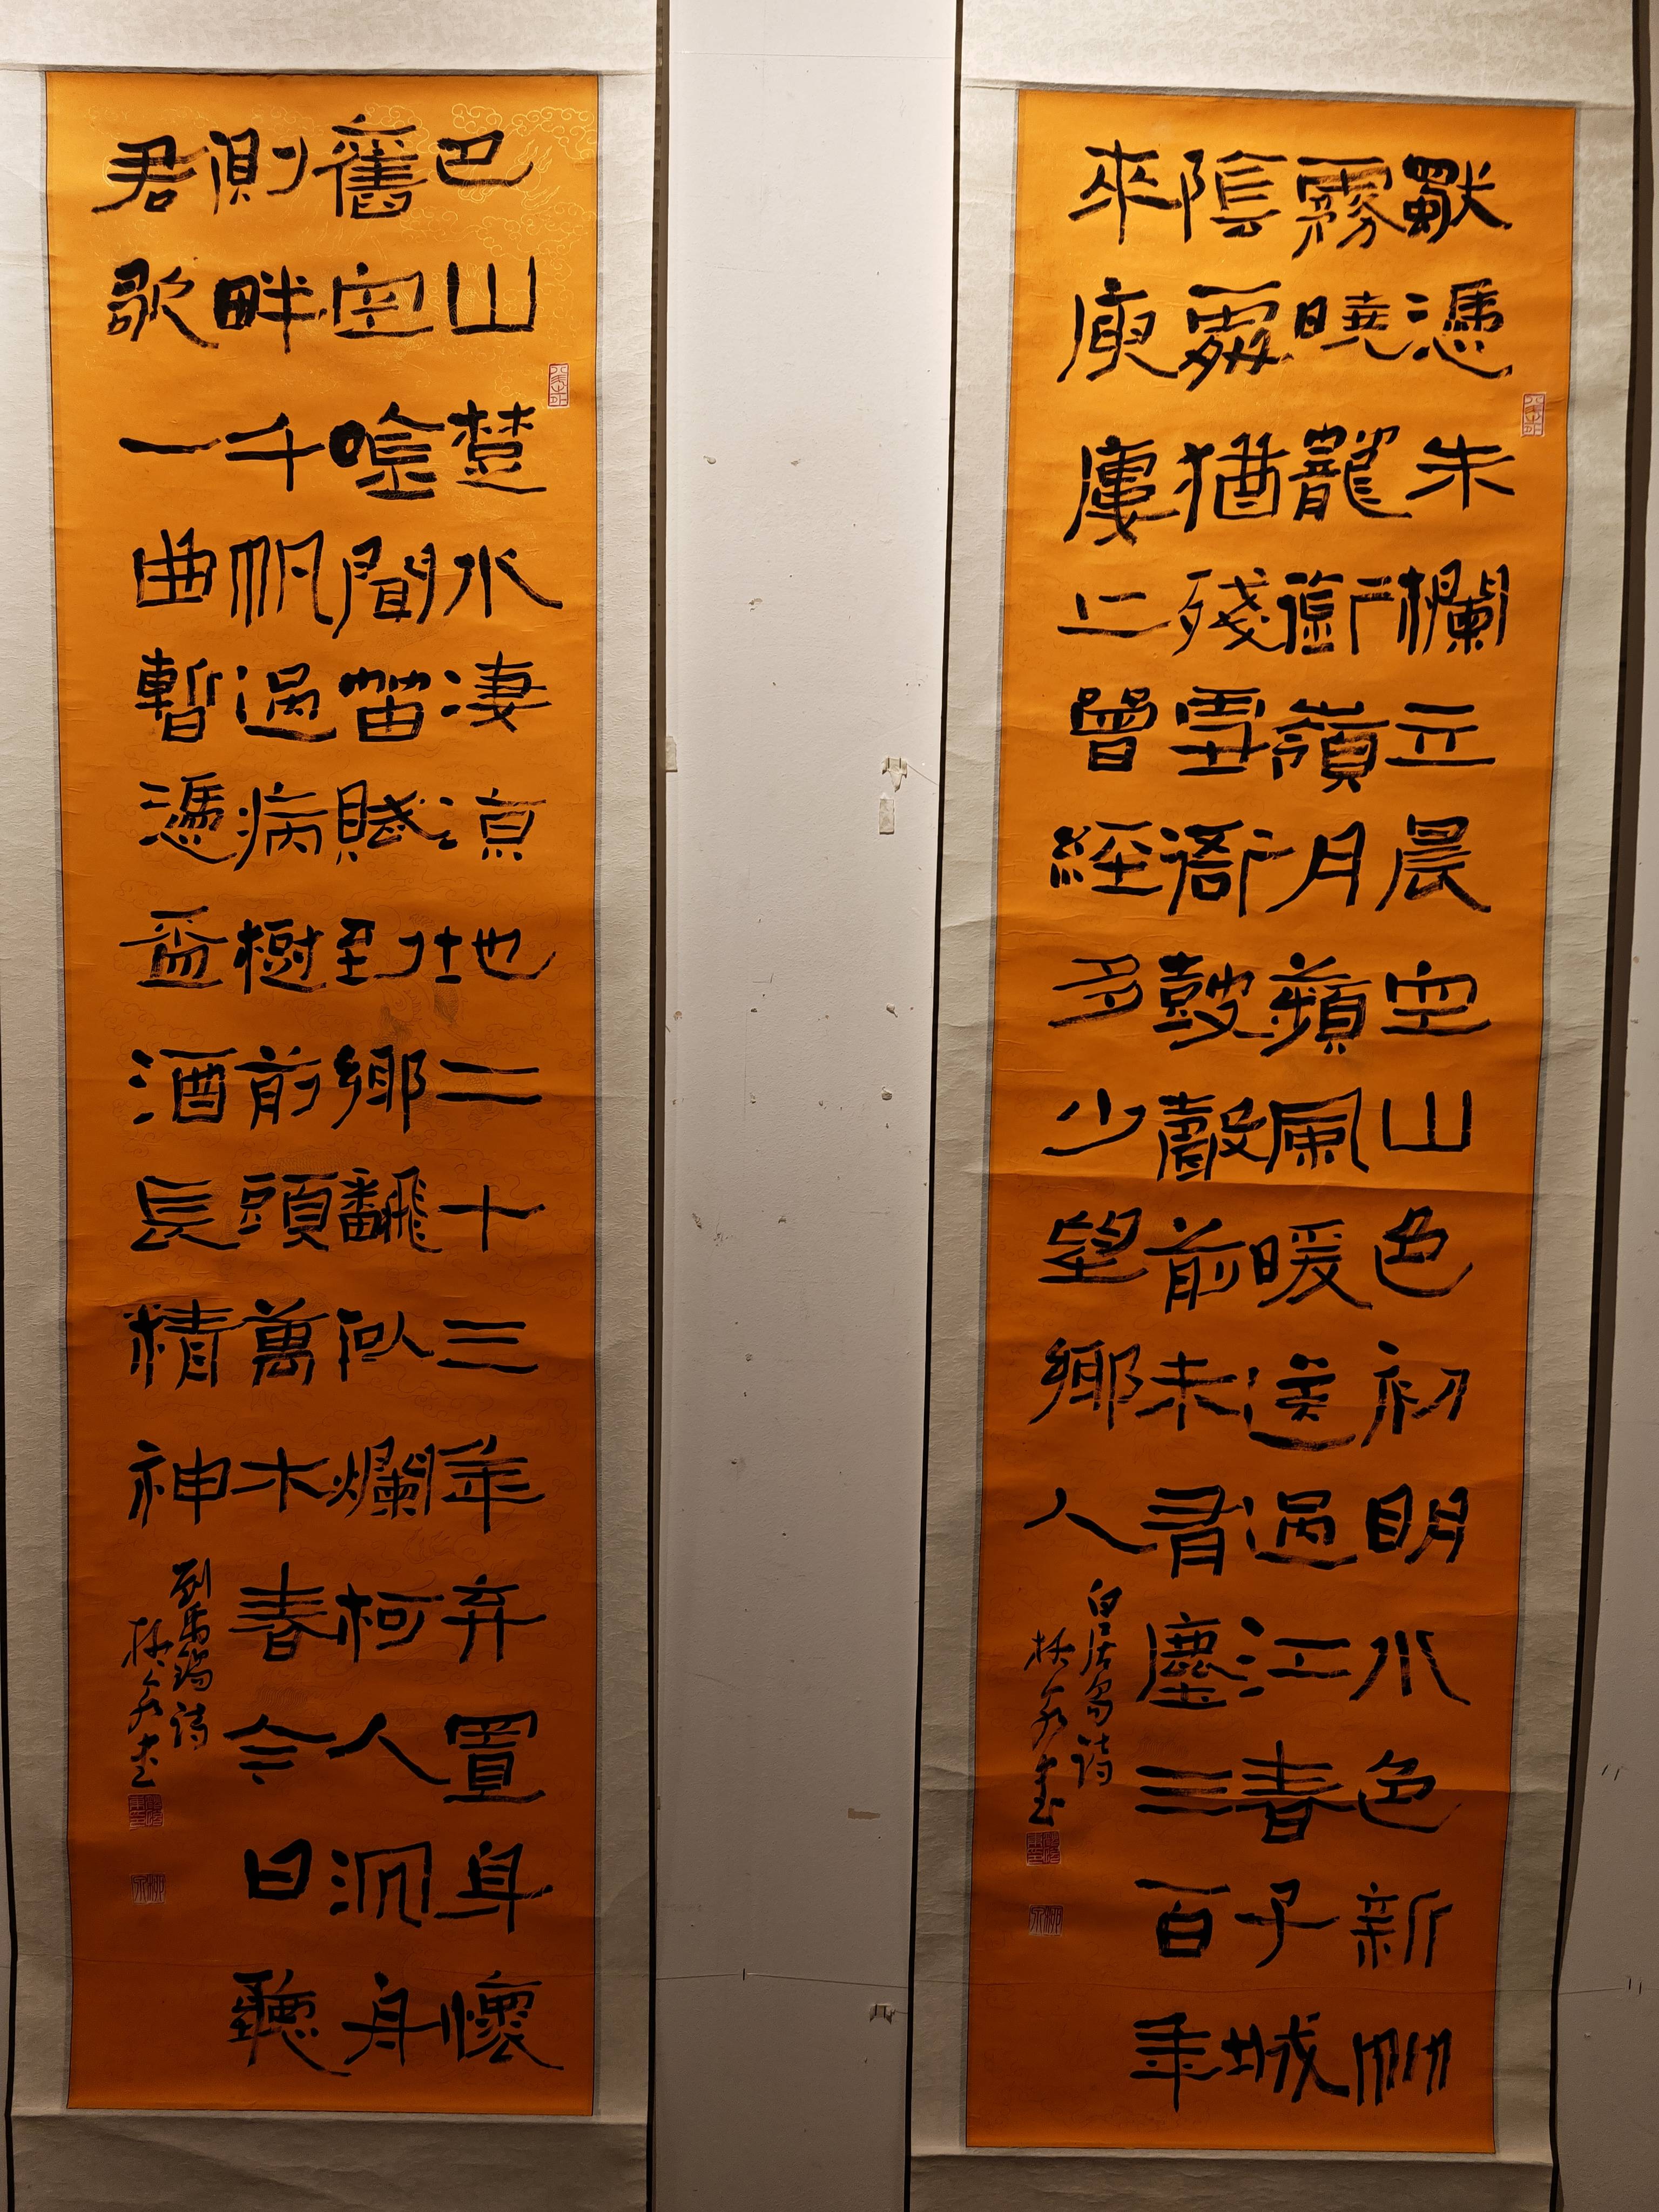 獨憑朱欄立晨空山色初明水色新竹
霧曉籠銜嶺月蘋風暖送過江春子城
陰處猶殘雪衙鼓聲前未有塵三百年
來庾廔上曾經多少望鄉人
白居易詩
巴山楚水淒涼地二十三年弃置身懷
舊空唫聞笛賦到鄉飜似爛柯人沉舟
側畔千帆過病樹前頭萬木春今日聽
君歌一曲暫憑盃酒長精神
劉禹錫詩